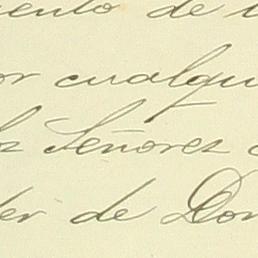 ento de l
or cualqu
los Señores c
der de Don